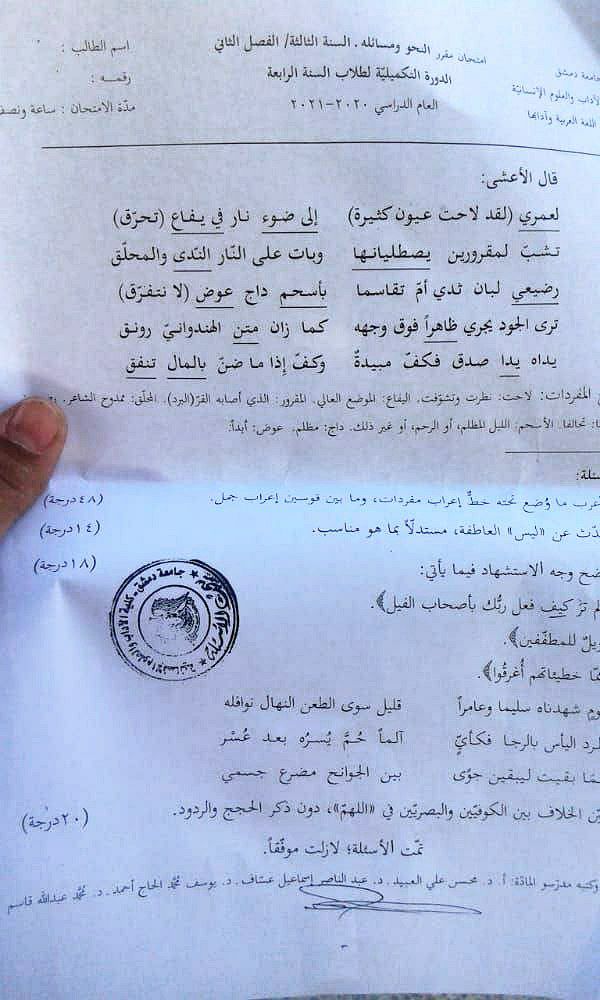 جامعة دمشق
الآداب والعلوم الإنسانيّة
اللغة العربية وآدابها
امتحان مقرر النحو ومسائله. السنة الثالثة/ الفصل الثاني
الدورة التكميليّة لطلاب السنة الرابعة
العام الدراسي ٢٠٢٠-٢٠٢١
اسم الطالب :
رقمه :
مدّة الامتحان : ساعة ونصف
قال الأعشى:
لعمري (لقد لاحت عيون كثيرة) إلى ضوء نار في يفاع (تحرّق)
تشبّ لمقرورين يصطليانها وبات على النّار النّدى والمحلّق
رضيعي لبان ثدي أمّ تقاسما بأسحم داج عوض (لا نتفرّق)
ترى الجود يجري ظاهراً فوق وجهه كما زان متن الهندوانيّ رونق
يداه يدا صدق فكفّ مبيدةٌ وكفّ إذا ما ضنّ بالمال تنفق
المفردات: لاحت: نظرت وتشوّفت. اليفاع: الموضع العالي. المقرور: الذي أصابه القرّ(البرد). المحلّق: ممدوح الشاعر.
تحالفا. الأسحم: الليل المظلم، أو الرحم، أو غير ذلك. داج: مظلم. عوض: أبداً.
ما وُضع تحته خطٌّ إعراب مفردات، وما بين قوسين إعراب جمل. (٤٨درجة)
عن «ليس» العاطفة، مستدلّاً بما هو مناسب. (١٤درجة)
وجه الاستشهاد فيما يأتي: (١٨درجة)
ترَ كيف فعل ربُّك بأصحاب الفيل﴾.
للمطفّفين﴾.
خطيئاتهم أُغرقُوا﴾.
شهدناه سليما وعامراً قليل سوى الطعن النهال نوافله
اليأس بالرجا فكأيّ آلماً حُمَّ يُسرُه بعد عُسْر
بقيت ليبقين جوًى بين الجوانح مضرع جسمي
الخلاف بين الكوفيّين والبصريّين في «اللهمّ»، دون ذكر الحجج والردود. (٢٠درجة)
تمّت الأسئلة؛ لازلت موفّقاً.
وكتبه مدرّسو المادّة: أ. د. محسن علي العبيد. د. عبد الناصر إسماعيل عسّاف. د. يوسف محمّد الحاج أحمد. د. محمّد عبدالله قاسم
جامعة دمشق - كلية الآداب والعلوم الإنسانية